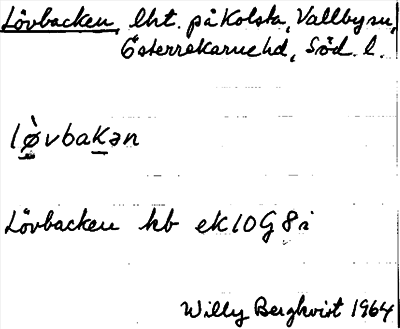 Lövbacken, lht. på Kolsta, Vallby sn,
Österrekarne hd, Söd. l.
lø̀vbakən
Lövbacken hb ek 10G 8i
Willy Bergkvist 1964